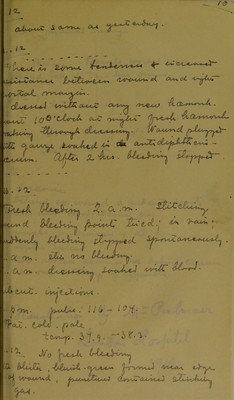 10
12
about same as yesterday.
12
There is some tenderness & increased
resistance between wound and right
costal margin.
dressed without any new hæmorrh.
10 o'clock at night fresh hæmorrh
through dressing. Wound plugged
gauze soaked in antidiphtheric
serum. After 2 hrs. bleeding stopped
12
Fresh bleeding 2 a.m. Stitching
bleeding points tried; in vain.
suddenly bleeding stopped spontaneously.
a.m. still no bleeding.
a.m. dressing soaked with blood.
subcut. injections.
p.m. pulse 116 - 104.
Pat. cold, pale
temp. 37.9 - 38.2
12. No fresh bleeding
blister, bluish green formed near edge
of wound, punctured contained stinking
gas.